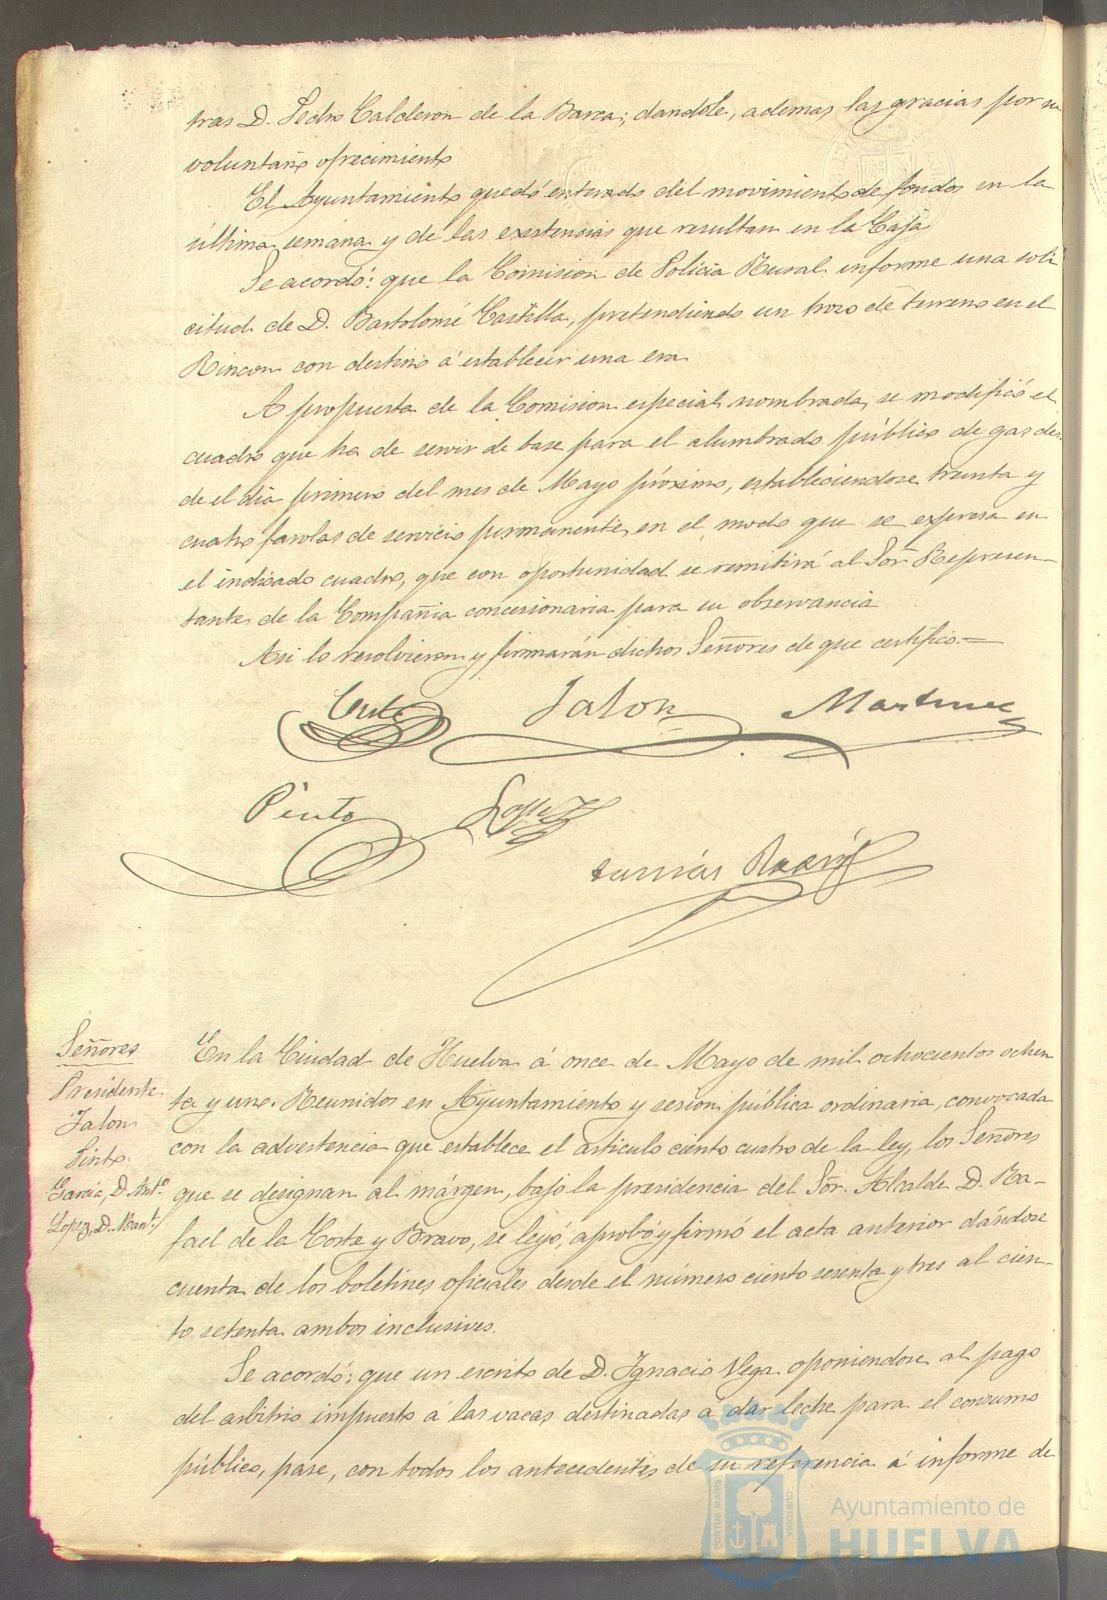 tras D. Pedro Calderon de la Barca; dandole, ademas las gracias por su
voluntario ofrecimiento
El Ayuntamiento quedó enterado del movimiento de fondos en la
última semana y de las existencias que resultan en la Caja
Se acordó: que la Comision de Policia Rural informe una soli
citud de D. Bartolomé Castilla, pretendiendo un trozo de terreno en el
Rincon con destino á establecer una era
A propuesta de la Comision especial nombrada, se modificó el
cuadro que ha de servir de base para el alumbrado público de gas des
de el dia primero del mes de Mayo próximo, estableciendose treinta y
cuatro farolas de servicio permanente, en el modo que se expresa en
el indicado cuadro, que con oportunidad se remitirá al Sor. Represen-
tante de la Compañia concesionaria para su observancia
Asi lo resolvieron y firmarán dichos Señores de que certifico=
Corte Jalon Martinez
Pinto Lopez
Señores
Presidente
Jalon
Pinto
Garcia, D. Ant.º
Lopez, D. Man.l
En la Ciudad de Huelva á once de Mayo de mil ochocientos ochen
ta y uno. Reunidos en Ayuntamiento y sesion pública ordinaria, convocada
con la advertencia que establece el articulo ciento cuatro de la ley, los Señores
que se designan al márgen, bajo la presidencia del Sor. Alcalde D. Ra-
fael de la Corte y Bravo, se leyó, aprobó y firmó el acta anterior dándose
cuenta de los boletines oficiales desde el número ciento sesenta y tres al cien-
to setenta ambos inclusives.
Se acordó: que un escrito de D. Ignacio Vega oponiendose al pago
del arbitrio impuesto á las vacas destinadas á dar leche para el consumo
público, pase, con todos los antecedentes de su referencia á informe de
PORTUS MARIS
CUSTODIA
Ayuntamiento de
HUELVA